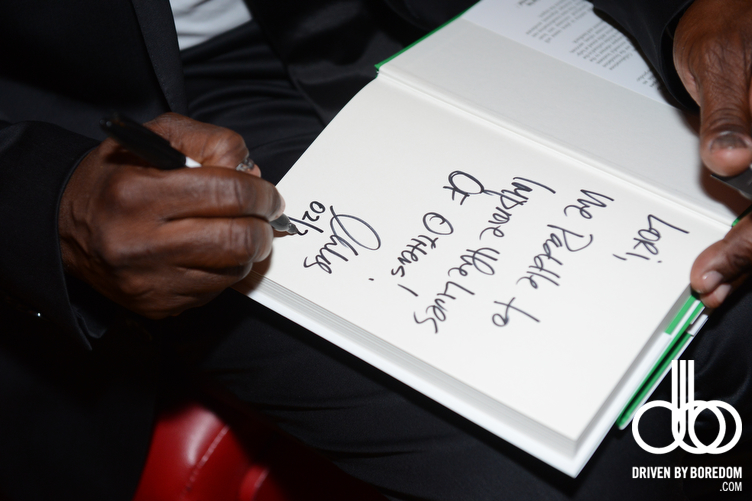 Lori,
We Paddle to
Improve the Lives
OF OTHERS!
Chris
02/2
DRIVEN BY BOREDOM
.COM